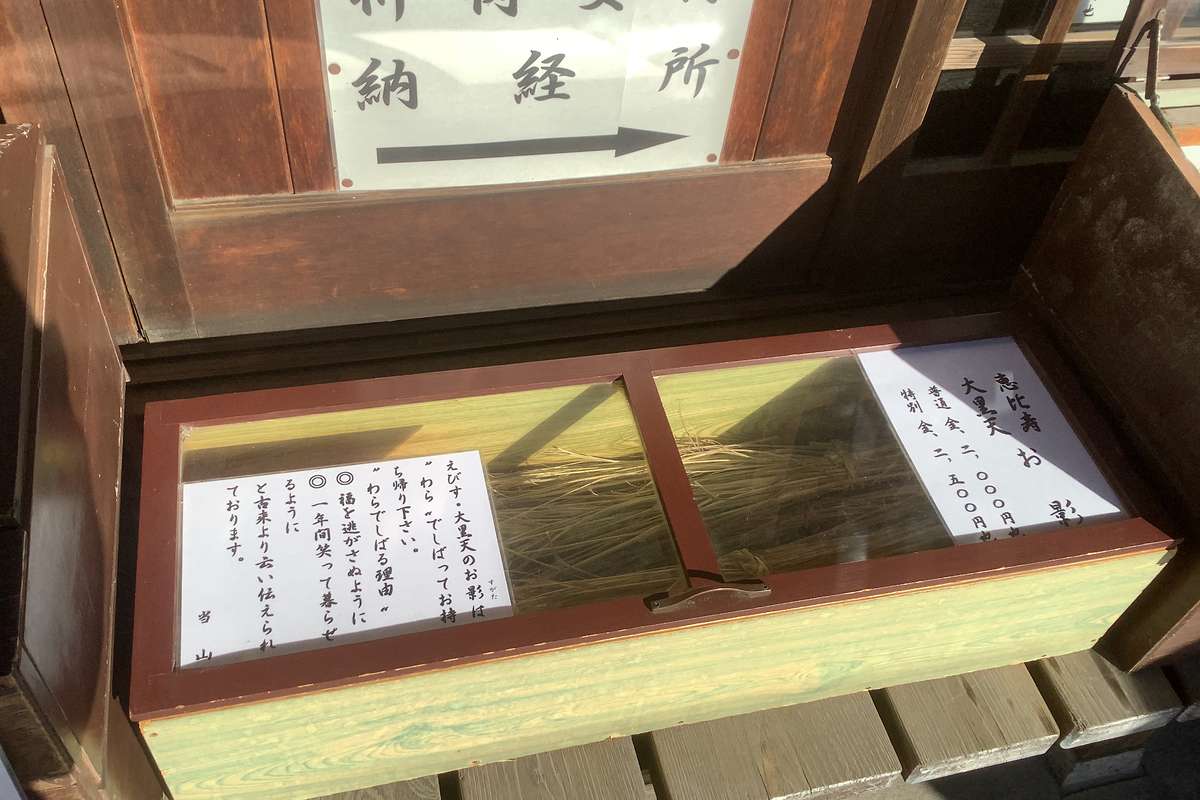 納経所
恵比寿
大黒天
お影
普通 金、二、〇〇〇円也
特別 金、二、五〇〇円也
えびす・大黒天のお影は
すがた
〝わら〟でしばってお持
ち帰り下さい。
〝わらでしばる理由〟
◎ 福を逃がさぬように
◎ 一年間笑って暮らせ
るように
と古来より云い伝えられ
ております。
当 山